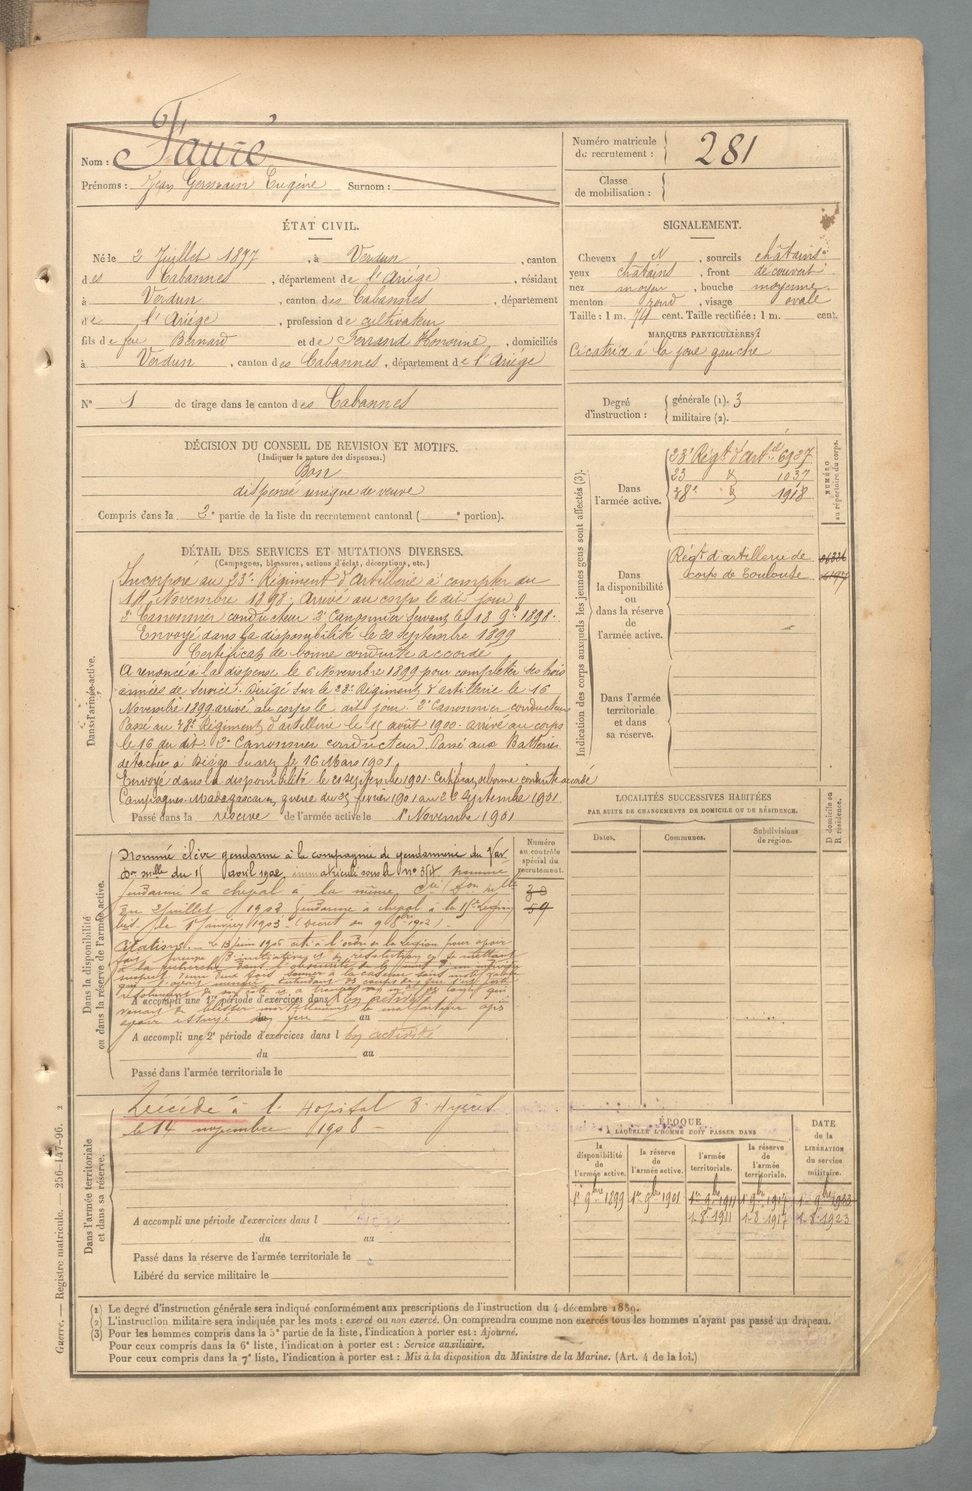 Nom : Fauré
Prénoms : Jean Germain Eugène Surnom :
Numéro matricule du recrutement : 281
Classe de mobilisation :
ÉTAT CIVIL.
Né le 2 Juillet 1877, à Verdun, canton
des Cabannes, département de l'Ariége, résidant
à Verdun, canton des Cabannes, département
de l'Ariége, profession de cultivateur
fils de feu Bernard et de Ferrand Honorine, domiciliés
à Verdun, canton des Cabannes, département de l'Ariége
N° 1 de tirage dans le canton des Cabannes
SIGNALEMENT.
Cheveux N, sourcils châtains
yeux châtains, front découvert
nez moyen, bouche moyenne
menton rond, visage ovale
Taille : 1 m. 74 cent. Taille rectifiée : 1 m. cent.
MARQUES PARTICULIÈRES :
Cicatrice à la joue gauche
Degré d'instruction : générale (1). 3
militaire (2).
DÉCISION DU CONSEIL DE REVISION ET MOTIFS.
(Indiquer la nature des dispenses.)
Bon
dispensé unique de veuve
Compris dans la 2e partie de la liste du recrutement cantonal ( e portion).
DÉTAIL DES SERVICES ET MUTATIONS DIVERSES.
(Campagnes, blessures, actions d'éclat, décorations, etc.)
Dans l'armée active.
Incorporé au 23e Régiment d'Artillerie à compter du
14 Novembre 1898. Arrivé au corps le dit jour
2e Canonnier conducteur 2e Canonnier Servant le 18 9bre 1898.
Envoyé dans la disponibilité le 20 septembre 1899
Certificat de bonne conduite accordé
A renoncé à la dispense le 6 Novembre 1899 pour compléter ses trois
années de service. Dirigé sur le 23e Régiment d'artillerie le 16
Novembre 1899 arrivé au corps le dit jour. 2e Canonnier conducteur
Passé au 38e Régiment d'artillerie le 15 août 1900. arrivé au corps
le 16 du dit. 2e Canonnier conducteur. Passé aux Batteries
détachées à Diégo Suarez le 16 Mars 1901
Envoyé dans la disponibilité le 21 septembre 1901. Certificat de bonne conduite accordé
Campagnes. Madagascar en guerre du 25 février 1901 au 22 Septembre 1901
Passé dans la réserve de l'armée active le 1er Novembre 1901
Indication des corps auxquels les jeunes gens sont affectés (3).
NUMÉRO au répertoire du corps.
Dans l'armée active.
23e Régt d'Artie 6937
23 d° 1037
38e d° 1918
Dans la disponibilité ou dans la réserve de l'armée active.
Régt d'artillerie de
corps de Toulouse
Dans l'armée territoriale et dans sa réserve.
LOCALITÉS SUCCESSIVES HABITÉES
PAR SUITE DE CHANGEMENTS DE DOMICILE OU DE RÉSIDENCE.
Dates. Communes. Subdivisions de région. D domicile ou R résidence.
Dans la disponibilité ou dans la réserve de l'armée active.
Numéro au contrôle spécial du recrutement.
Nommé élève gendarme à la compagnie de gendarmerie du Var
Don mlle du 15 avril 1902, immatriculé sous le n° 354 nommé
Gendarme à cheval à la même Cie Don mlle
du 2 juillet 1902 Gendarme à cheval à la 15e Légion
bis. le 1er Janvier 1903 (décret du 9 8bre 1902).
30
59
Citations. Le 13 juin 1905 cité à l'ordre de la Légion pour avoir
fait preuve d'initiative et de résolution en se mettant
à la recherche dans l'obscurité
A accompli une 1re période d'exercices dans l
du au
A accompli une 2e période d'exercices dans l en activité
du au
Passé dans l'armée territoriale le
Dans l'armée territoriale et dans sa réserve.
Décédé à l'Hopital d'Hyères
le 14 novembre 1908
A accompli une période d'exercices dans l
du au
Passé dans la réserve de l'armée territoriale le
Libéré du service militaire le
ÉPOQUE
À LAQUELLE L'HOMME DOIT PASSER DANS
la disponibilité de l'armée active. la réserve de l'armée active. l'armée territoriale. la réserve de l'armée territoriale. DATE de la LIBÉRATION du service militaire.
1er 9bre 1899 1er 9bre 1901 1er 9bre 1911 1er 9bre 1917 1er 9bre 1923
1-8 1911 1-8 1917 1-8 1923
(1) Le degré d'instruction générale sera indiqué conformément aux prescriptions de l'instruction du 4 décembre 1889.
(2) L'instruction militaire sera indiquée par les mots : exercé ou non exercé. On comprendra comme non exercés tous les hommes n'ayant pas passé au drapeau.
(3) Pour les hommes compris dans la 5e partie de la liste, l'indication à porter est : Ajourné.
Pour ceux compris dans la 6e liste, l'indication à porter est : Service auxiliaire.
Pour ceux compris dans la 7e liste, l'indication à porter est : Mis à la disposition du Ministre de la Marine. (Art. 4 de la loi.)
Guerre. — Registre matricule. — 256-147-96. 2